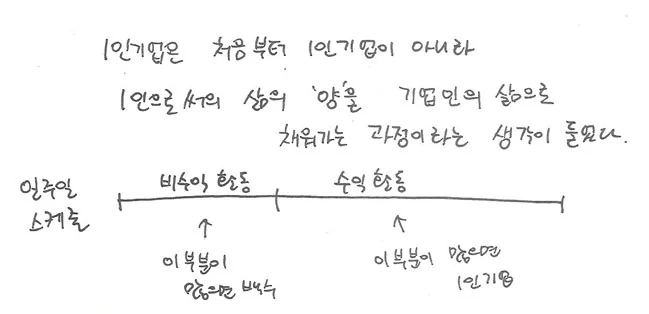 1인기업은 처음부터 1인기업이 아니라
1인으로써의 삶의 '양'을 기업인의 삶으로
채워가는 과정이라는 생각이 들었다.
일주일
스케줄
비수익 활동
수익 활동
이부분이
많으면 백수
이 부분이 많으면
1인기업